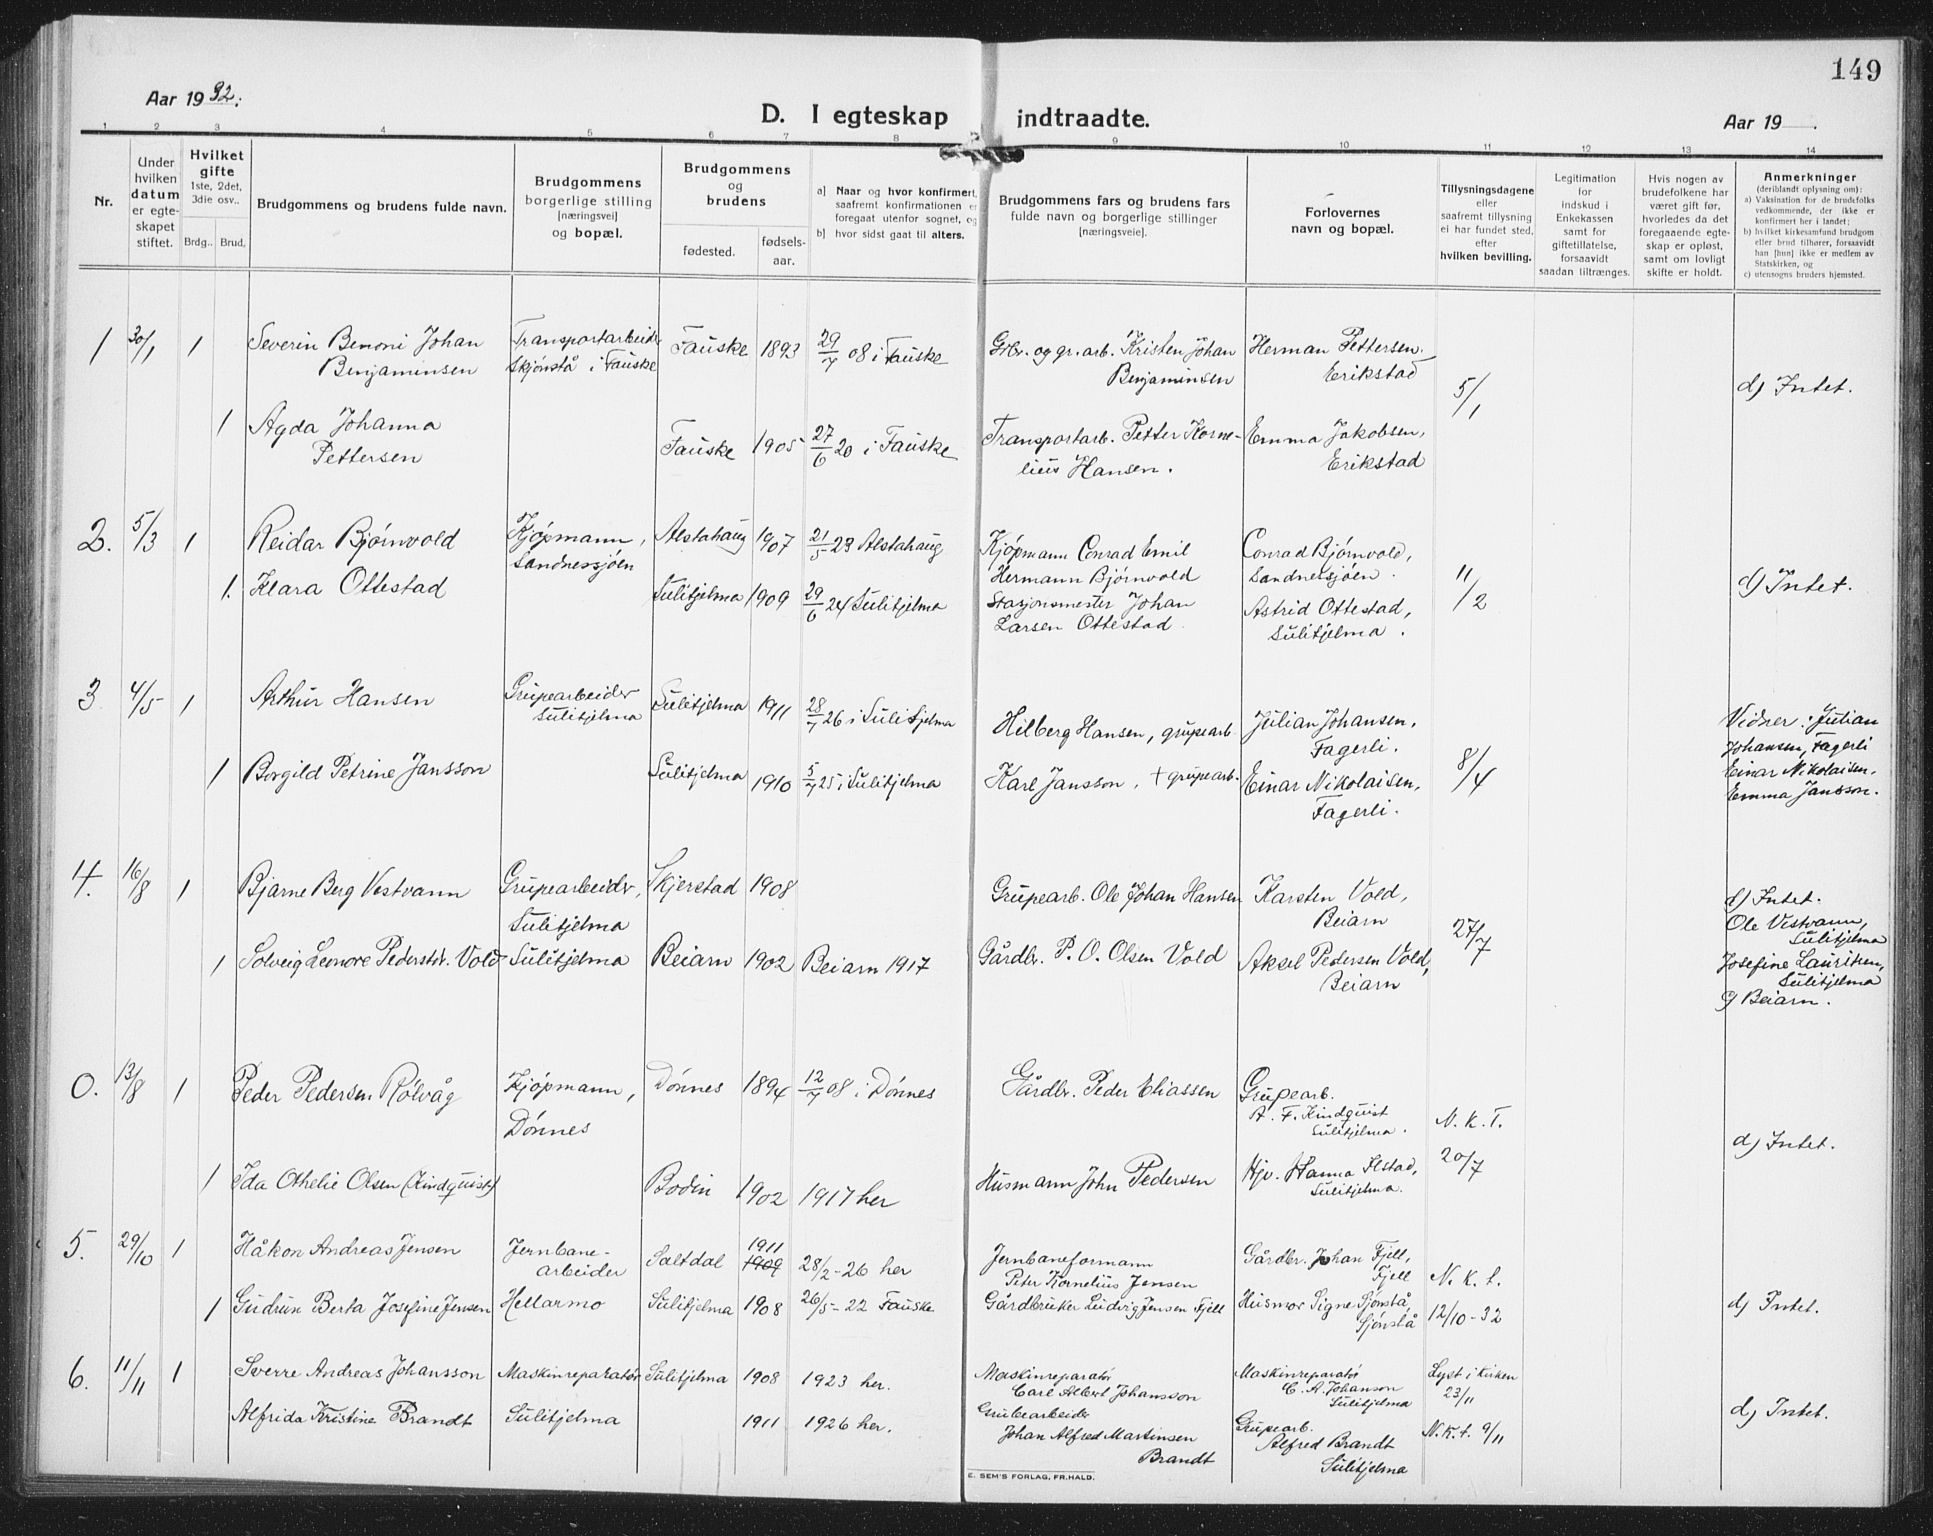 149
Aar 1932.
D. I egteskap indtraadte.
Aar 19 .
1 2 3 4 5 6 7 8 9 10 11 12 13 14
Nr.
Under
hvilken
datum
er egte-
skapet
stiftet.
Hvilket
gifte
1ste, 2det,
3die osv..
Brdg..
Brud.
Brudgommens og brudens fulde navn.
Brudgommens
borgerlige stilling
[næringsvei]
og bopæl.
Brudgommens
og
brudens
fødested.
fødsels-
aar.
a] Naar og hvor konfirmert,
saafremt konfirmationen er
foregaat utenfor sognet, og
b] hvor sidst gaat til alters.
Brudgommens fars og brudens fars
fulde navn og borgerlige stillinger
[næringsveie].
Forlovernes
navn og bopæl.
Tillysningsdagene
eller
saafremt tillysning
ei har fundet sted,
efter
hvilken bevilling.
Legitimation
for
indskud i
Enkekassen
samt for
giftetillatelse,
forsaavidt
saadan tiltrænges.
Hvis nogen av
brudefolkene har
været gift før,
hvorledes da det
foregaaende egte-
skap er opløst,
samt om lovligt
skifte er holdt.
Anmerkninger
(deriblandt oplysning om):
a) Vaksination for de brudefolks
vedkommende, der ikke er
konfirmert her i landet;
b) hvilket kirkesamfund brudgom
eller brud tilhører, forsaavidt
han [hun] ikke er medlem av
Statskirken, og
c) utensogns bruders hjemsted.
1 30/1 1 Severin Benoni Johan
Benjaminsen
Transportarbeider
Skjønstå i Fauske
Fauske 1893 29/7 08 i Fauske
Grbr. og gr.arb. Kristen Johan
Benjaminsen
Herman Pettersen.
Erikstad
5/1
d) Intet.
1 Agda Johanna
Pettersen
Fauske 1905 27/6 20 i Fauske
Transportarb. Petter Korne-
lius Hansen.
Emma Jakobsen,
Erikstad
2. 5/3 1 Reidar Bjørnvold
Kjøpmann,
Sandnessjøen
Alstahaug 1907 21/5 23 Alstahaug
Kjøpmann Conrad Emil
Hermann Bjørnvold
Conrad Bjørnvold,
Sandnessjøen.
11/2
d) Intet.
1. Klara Ottestad
Sulitjelma 1909 29/6 24 Sulitjelma
Stasjonsmester Johan
Larsen Ottestad
Astrid Ottestad,
Sulitjelma.
3 4/5 1 Arthur Hansen
Grupearbeider
Sulitjelma
Sulitjelma 1911 28/7 26 i Sulitjelma
Hilberg Hansen, grupearb.
Julian Johansen,
Fagerli.
8/4
Vidner: Julian
Johansen, Fagerli
Einar Nikolaisen,
Emma Jansson.
1 Borgild Petrine Jansson
Sulitjelma 1910 5/7 25 i Sulitjelma
Karl Jansson, + grupearb.
Einar Nikolaisen,
Fagerli.
4. 16/8 1 Bjarne Berg Vestvann
Grupearbeider,
Sulitjelma
Skjerstad 1908
Grupearb. Ole Johan Hansen
Karsten Vold,
Beiarn
27/7
d) Intet.
Ole Vestvann,
Sulitjelma
Josefine Lauritsen,
Sulitjelma
c) Beiarn.
1 Solveig Leonore Pederstr. Vold
Sulitjelma
Beiarn 1902 Beiarn 1917
Gårdbr. P. O. Olsen Vold
Aksel Pedersen Vold,
Beiarn
0. 13/8 1 Peder Pedersen Rølvåg
Kjøpmann,
Dønnes
Dønnes 1894 12/7 08 i Dønnes
Gårdbr. Peder Eliassen
Grupearb.
A. F. Kindquist
Sulitjelma.
N. K. T.
20/7
d) Intet.
1 Ida Othelie Olsen (Kindquist)
Bodin 1902 1917 her
Husmann John Pedersen
Hjv. Hanna Ilstad,
Sulitjelma.
5. 29/10 1 Håkon Andreas Jensen
Jernbane-
arbeider
Saltdal 1911
1909
28/2-26 her
Jernbaneformann
Peter Kornelius Jensen
Gårdbr. Johan Fjell,
Fjell
N. K. t.
12/10-32
d) Intet.
1 Gudrun Berta Josefine Jensen
Hellarmo
Sulitjelma 1908 26/5-22 Fauske
Gårdbruker Ludvig Jensen Fjell
Husmor Signe Sjønstå,
Sjønstå
6. 11/11 1 Sverre Andreas Johansson
Maskinreparatør
Sulitjelma 1908 1923 her.
Maskinreparatør
Carl Albert Johansson
Maskinreparatør
C. A. Johanson
Sulitjelma
Lyst i kirken
23/11
d) Intet.
Alfrida Kristine Brandt
Sulitjelma
1911 1926 her.
Grubearbeider
Johan Alfred Martinsen
Brandt
Grupearb.
Alfred Brandt
Sulitjelma
N. K. t. 9/11
E. SEM'S FORLAG, FR.HALD.